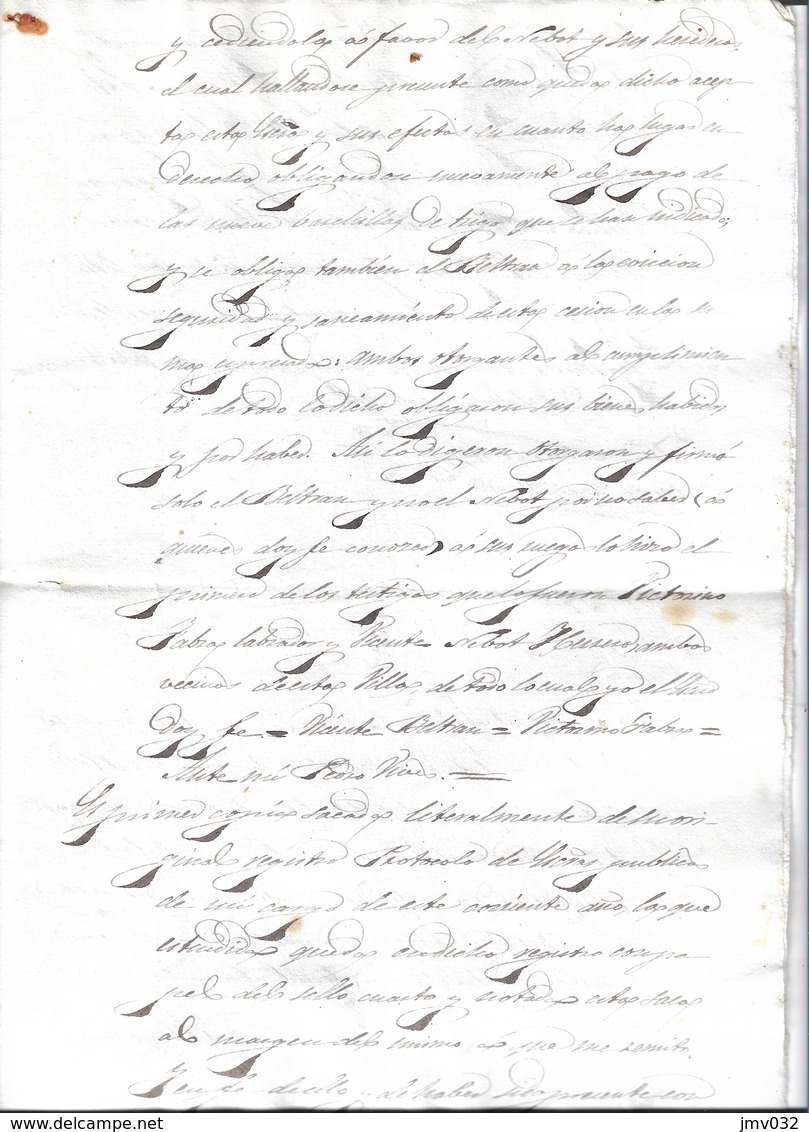 y cediendolas a favor del Nebot y sus herederos,
el cual hallandose presente como queda dicho acep-
ta esta Escra y sus efectos en cuanto ha lugar en
derecho, obligandose nuevamente al pago de
las nueve barchillas de trigo que se han indicado;
y se obliga tambien el Beltran a la eviccion
seguridad y saneamiento de esta cesion en la
ambos otorgantes al cumplimien-
to de todo lo dicho obligaron sus bienes habidos
y por haber. Asi lo digeron otorgaron y firmó
solo el Beltran y no el Nebot por no saber (a
quienes doy fe conozco) a su ruego lo hizo el
primero de los testigos que lo fueron Victorino
Fabra labrador y Vicente Nebot Herrero, ambos
vecinos de esta Villa, de todo lo cual yo el Esno
doy fe = Vicente Beltran = Victorino Fabra =
Ante mi Pedro Vives. =
Es primera copia sacada literalmente de su ori-
ginal registro Protocolo de Escras publicas
de mi cargo de este corriente año, la que
estendida queda en dicho registro en pa-
pel del sello cuarto y notada esta saca
al margen del mismo a que me remito.
Y en fe de ello y de haber sido presente con
jmv032